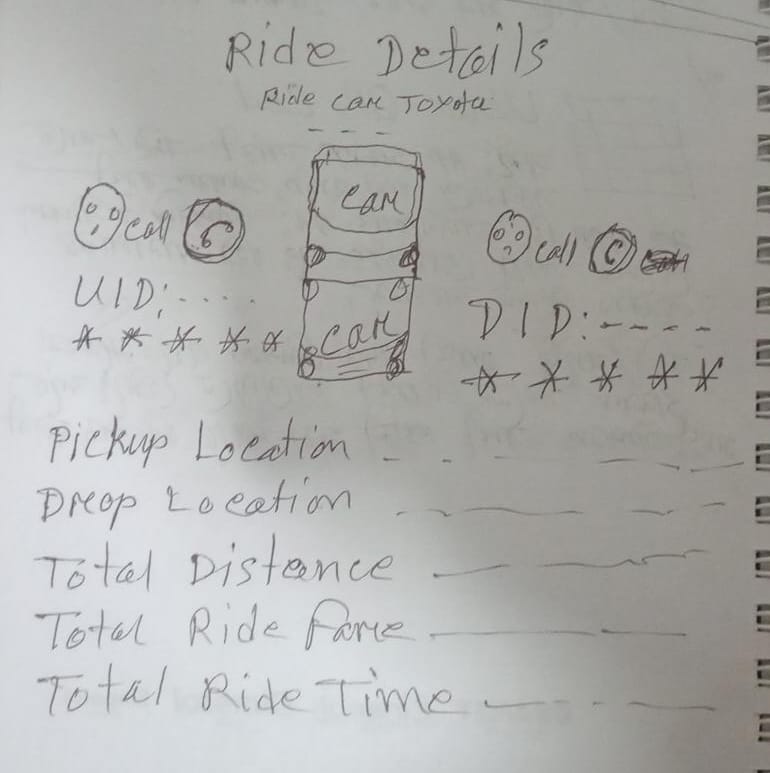 Ride Details
Ride Car Toyota
- - -
Car
call
call C
UID: - - - -
* * * * *
Car
DID: - - - -
* * * * *
Pickup Location - - - - - -
Drop Location - - - - -
Total Distance - - -
Total Ride Fare - - -
Total Ride Time - - - -